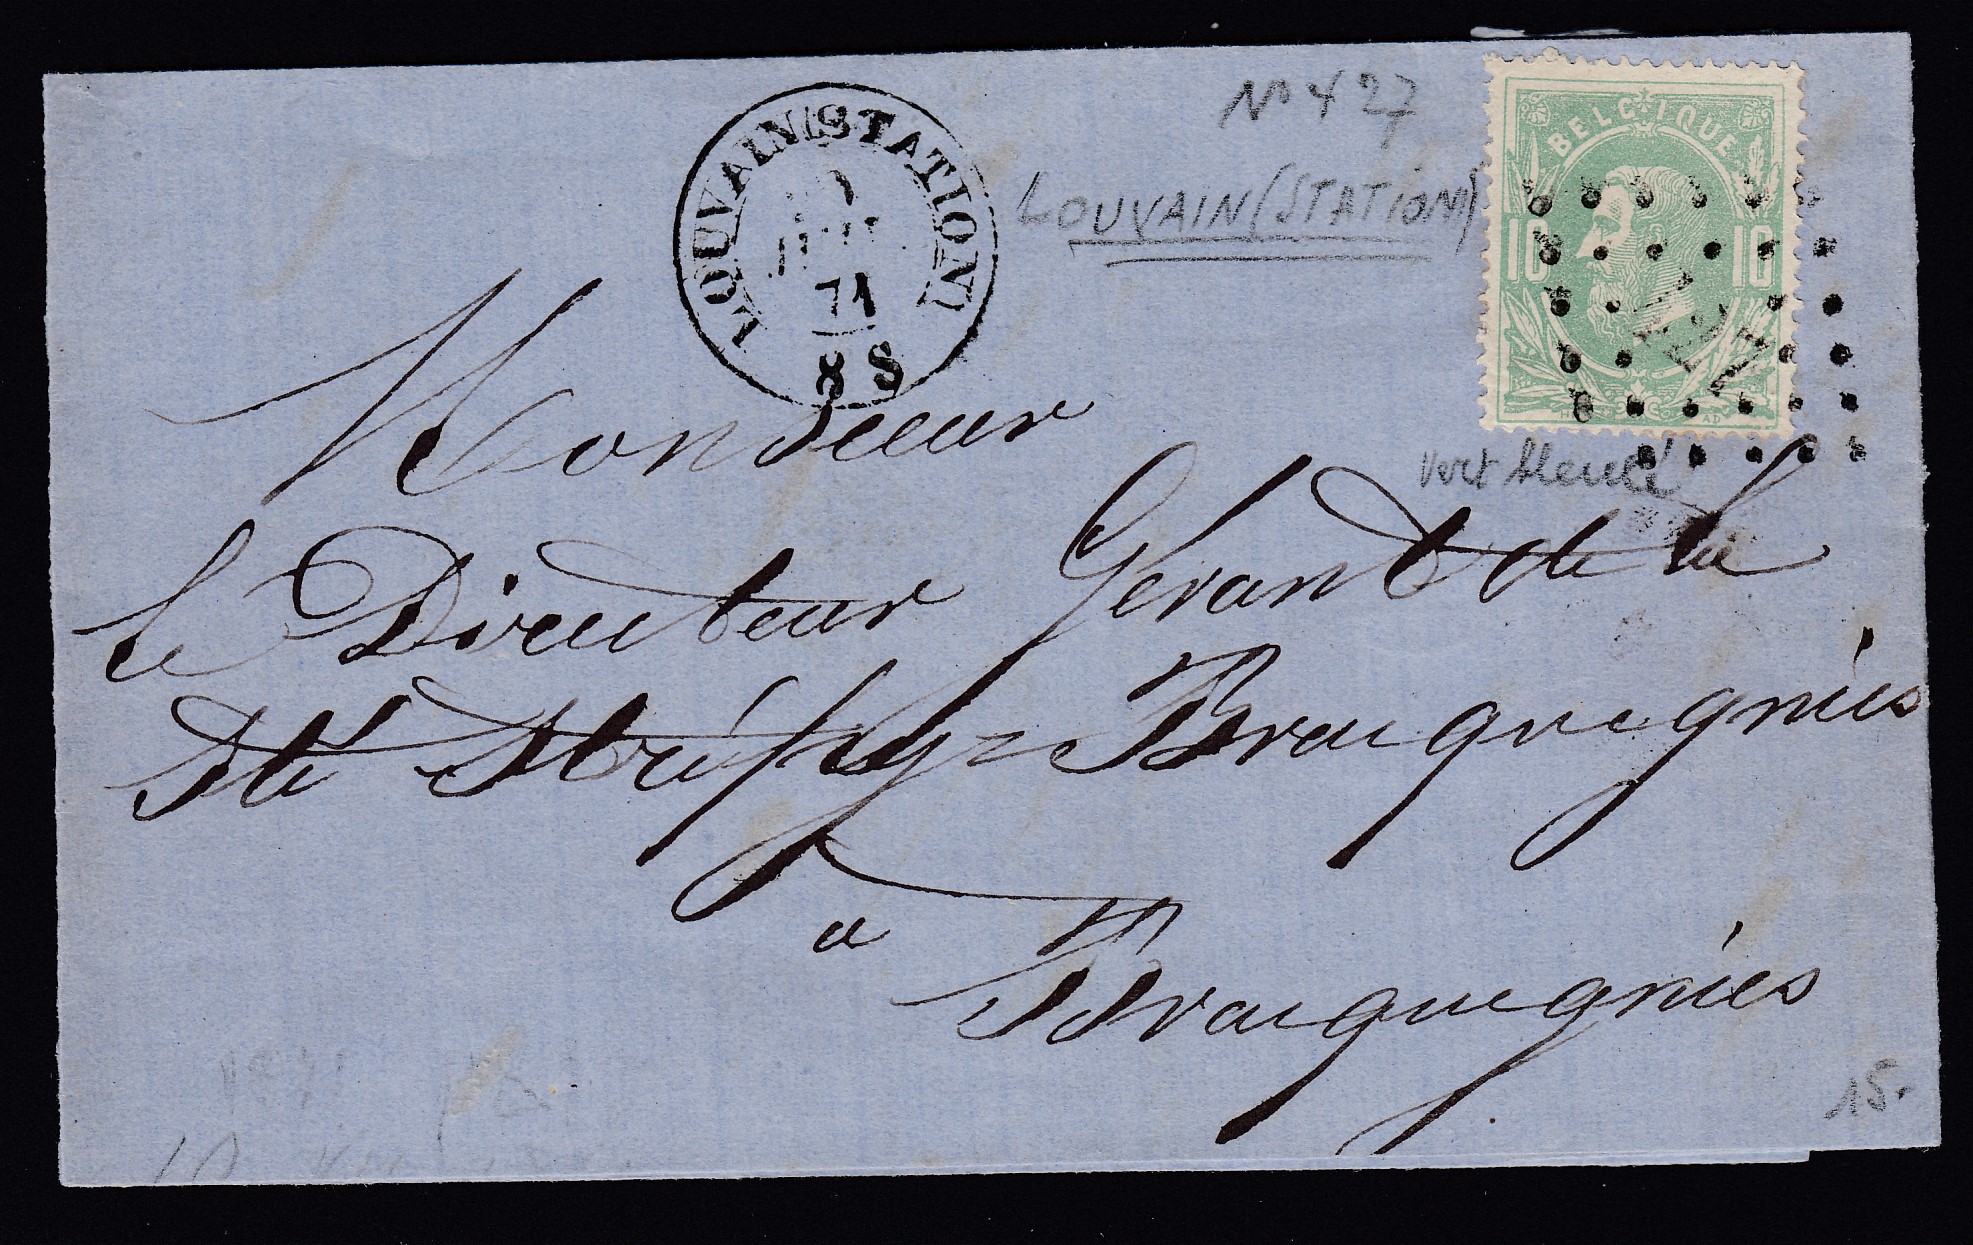 N° 427
BELGIQUE
LOUVAIN (STATION)
LOUVAIN (STATION)
10 10
71
8 S
vert bleuté
Monsieur
le Directeur Gérant de la
Sté Strépy-Bracquegnies
a
Bracquegnies
15.